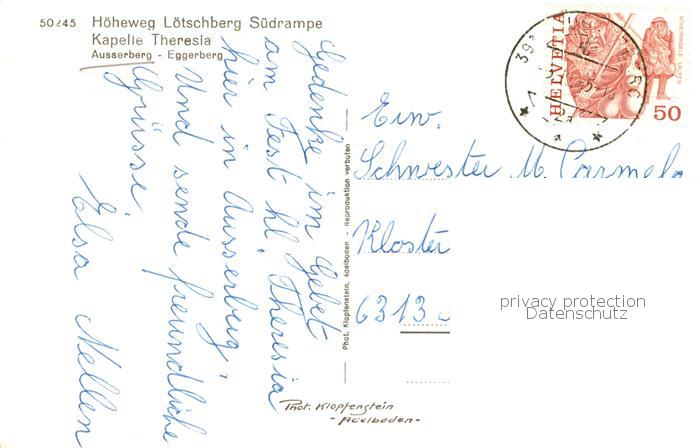 50245 Höheweg Lötschberg Südrampe
Kapelle Theresia
Ausserberg - Eggerberg
Gedenke im Gebet
am Fest hl Theresia
hier in Ausserberg,
Und sende freundliche
Grüsse
Elsa Nellen
Phot. Klopfenstein, Adelboden - Reproduktion verboten
Phot. Klopfenstein
- Adelboden -
HELVETIA
ACHETRINGELE LAUPEN
50
Ew.
Schwester M. Carmela
Kloster
6313
privacy protection
Datenschutz